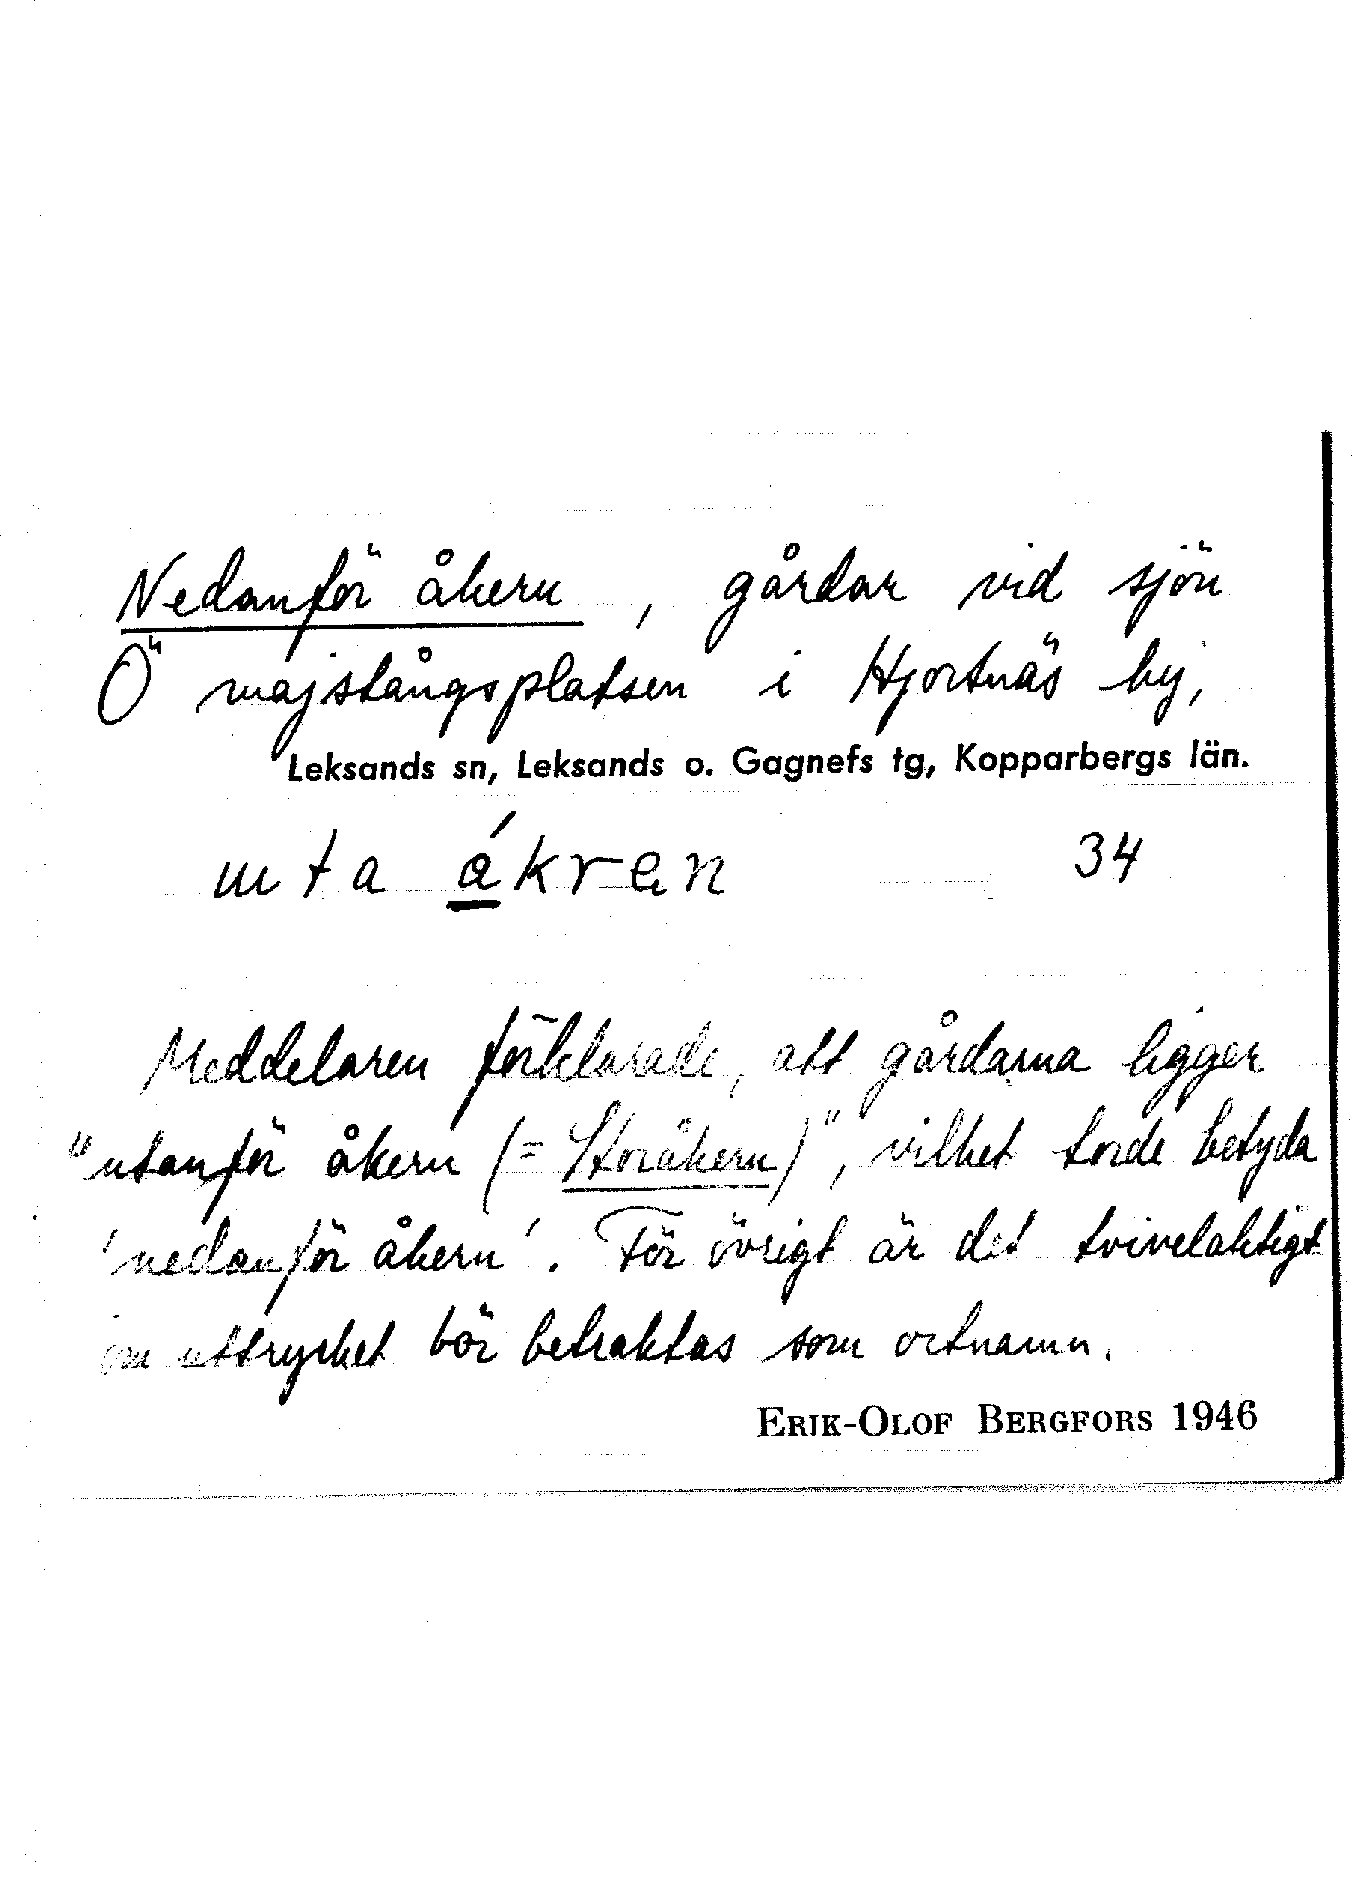 Nedanför åkern, gårdar vid sjön
Ö majstångsplatsen i Hjortnäs by,
Leksands sn, Leksands o. Gagnefs tg, Kopparbergs län.
ɯta ákrɐn 34
Meddelaren förklarade, att gårdarna ligger
"utanför åkern (= Storåkern)", vilket torde betyda
'nedanför åkern'. För övrigt är det tvivelaktigt
om uttrycket bör betraktas som ortnamn.
ERIK-OLOF BERGFORS 1946